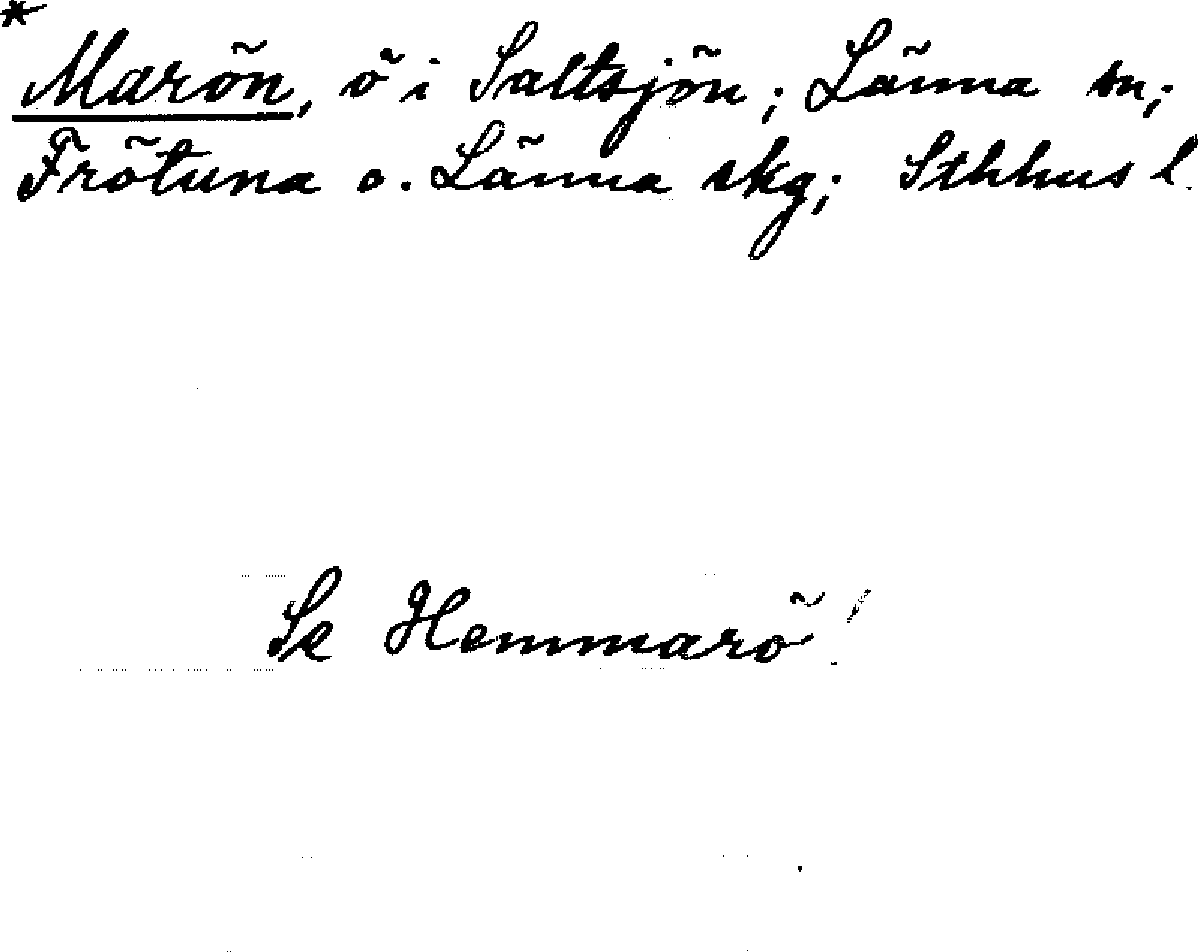 *
Marön, ö i Saltsjön; Länna sn;
Frötuna o. Länna skg; Sthhus l.
Se Hemmarö!